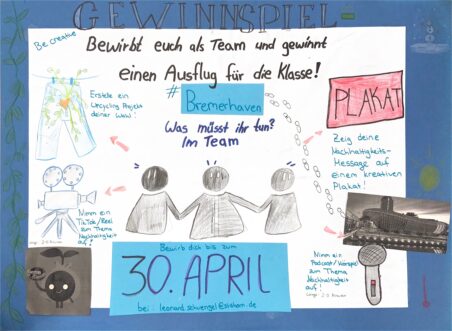 GEWINNSPIEL
Be creative
Bewirbt euch als Team und gewinnt
einen Ausflug für die Klasse!
#Bremerhaven
Was müsst ihr tun?
Im Team
Erstelle ein
Upcycling Projekt
deiner Wahl!
PLAKAT
Zeig deine
Nachhaltigkeits-
Message auf
einem kreativen
Plakat!
Nimm ein
TikTok/Reel
zum Thema
Nachhaltigkeit
auf!
Nimm ein
Podcast/Hörspiel
zum Thema
Nachhaltigkeit
auf!
Bewirb dich bis zum
30. APRIL